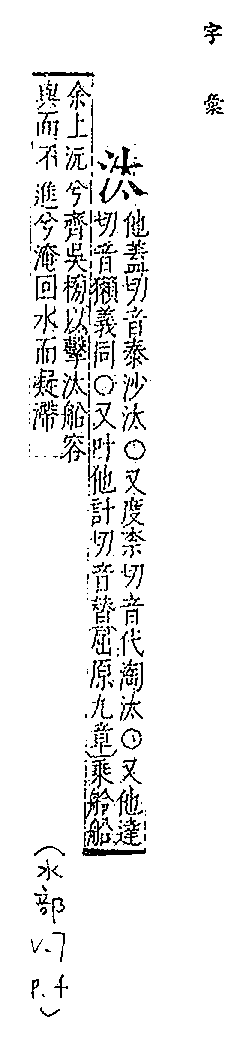 字彙
汰
他蓋切音泰沙汰○又度柰切音代淘汰○又他達
切音獺義同○又叶他計切音替屈原九章乘舲船
余上沅兮齊吳榜以擊汰船容
與而不進兮淹回水而凝滯
(水部
V.7
P.4)